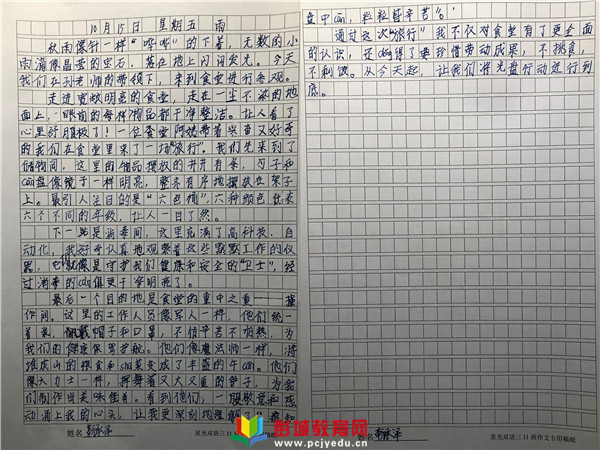 10月15日 星期五 雨
秋雨像针一样“哗哗”的下着，无数的小
雨滴像晶莹的宝石，落在地上闪闪发光。今天
我们在孙老师的带领下，来到食堂进行参观。
走进宽敞明亮的食堂，走在一尘不染的地
面上，眼前的每样物品都干净整洁。让人看了
心里舒服极了！一位食堂阿姨带着兴奋又好奇
的我们在食堂里来了一场“旅行”。我们先来到了
储物间，这里的物品摆放的井井有条，勺子和
cān盘像镜子一样明亮，整齐有序地摆放在架子
上。最引人注目的是“六色桶”，六种颜色代表
六个不同的年级，让人一目了然。
下一站是消毒间，这里充满了高科技、自
动化，我好奇认真地观察着这些默默工作的仪
器，它们就像是守护我们健康和安全的“卫士”，经
过消毒的cān具更干净明亮了。
最后一个目的地是食堂的重中之重——操
作间，这里的工作人员像军人一样，他们统一
着装，佩戴帽子和口罩，不怕辛苦不怕热，为
我们的健康保驾护航。他们像魔法师一样，将
堆成山的粮食和shū菜变成了丰盛的午cān。他们
像大力士一样，挥舞着又大又重的铲子，为我
们制作出美味佳肴。看到他们，一股敬意和感
动涌上我的心头，让我更深刻地理解了“谁知
姓名
盘中cān，粒粒皆辛苦”。
通过这次“旅行”我不仅对食堂有了更全面
的认识，还dǒng得了要珍惜劳动成果，不挑食，
不剩饭。从今天起，让我们将光盘行动进行到
底。
姓名
星光双语三11班作文专用稿纸
彭城教育网
www.pcjyedu.cn